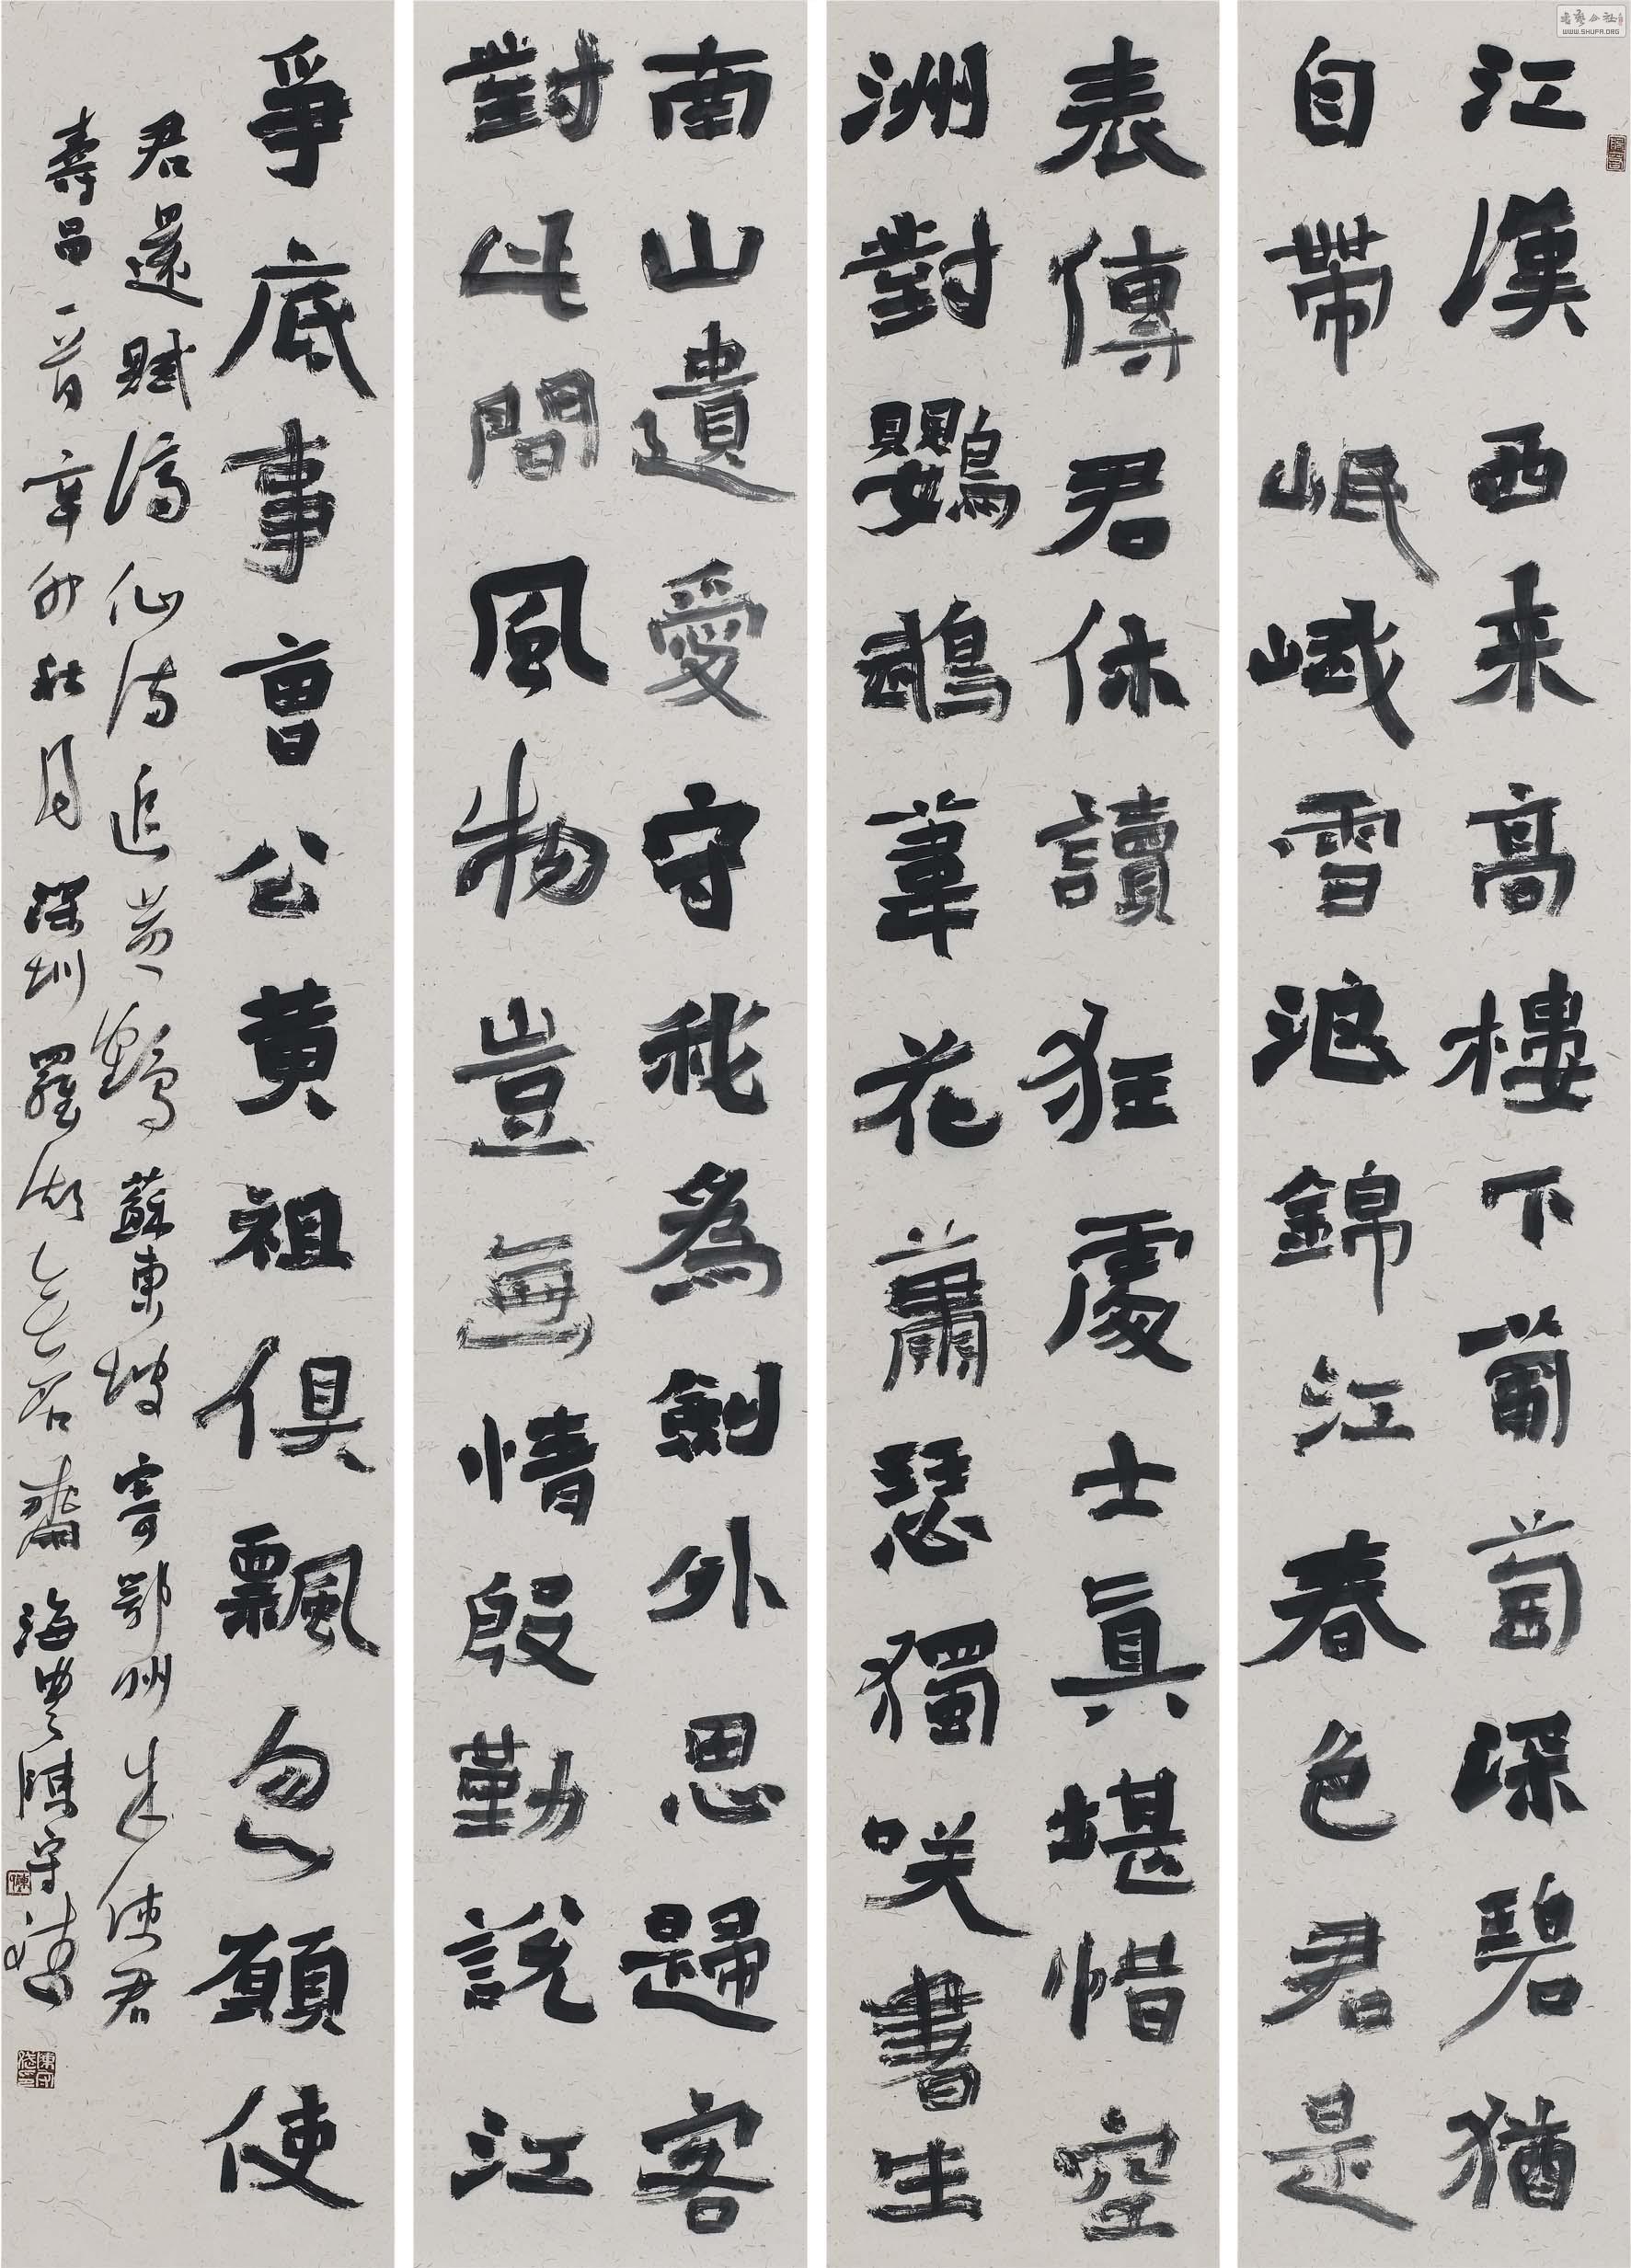 江漢西来高樓下葡萄深碧猶
自帶岷峨雪浪錦江春色君是
表傳君休讀狂處士真堪惜空
洲對鸚鵡葦花蕭瑟獨咲書生
南山遺愛守我為劍外思歸客
對此間風物豈無情殷勤說江
爭底事曹公黃祖俱飄忽願使
君還賦謫仙詩追黃鶴 蘇東坡寄鄂州朱使君
壽昌一首辛卯秋月深圳羅湖 海豐陳守
書藝公社
WWW.SHUFA.ORG